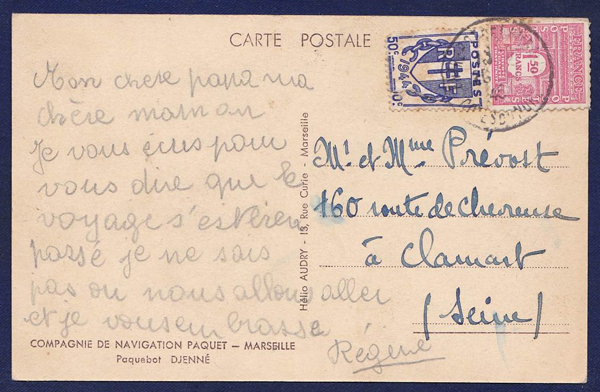 CARTE POSTALE
Mon chere papa ma
chère maman
Je vous écris pour
vous dire que le
voyage s'est bien
passé je ne sais
pas ou nous allons aller
et je vous embrasse
Régine
COMPAGNIE DE NAVIGATION PAQUET — MARSEILLE
Paquebot DJENNÉ
Hélio AUDRY - 13, Rue Curie - Marseille
50c POSTES 50c
1944
RF
FRANCE
POSTES
1F50
FRANC
Mr et Mme Prévost
160 route de chevreuse
à Clamart
(Seine)